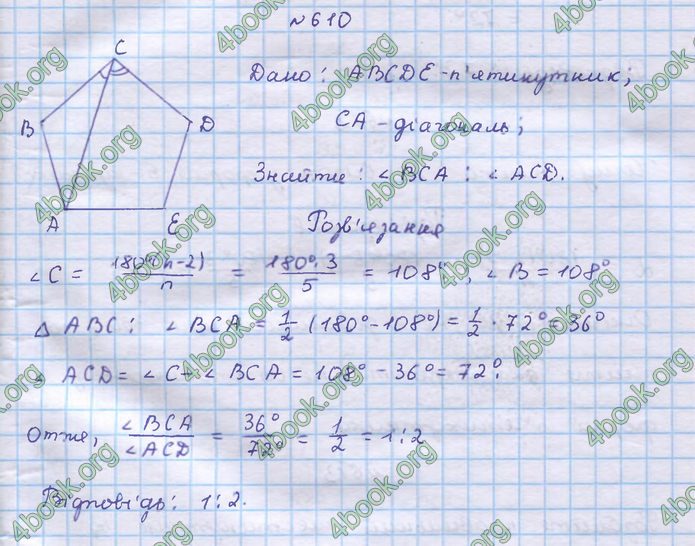 №610
C
Дано: ABCDE - п'ятикутник;
B
D
CA - діагональ;
Знайти: ∠BCA : ∠ACD.
A
E
Розв'язання
∠C = 180°(n-2)/n = 180°·3/5 = 108°, ∠B = 108°
△ABC: ∠BCA = 1/2 (180°-108°) = 1/2 · 72° = 36°
∠ACD = ∠C - ∠BCA = 108° - 36° = 72°.
Отже, ∠BCA/∠ACD = 36°/72° = 1/2 = 1:2
Відповідь: 1:2.
4book.org